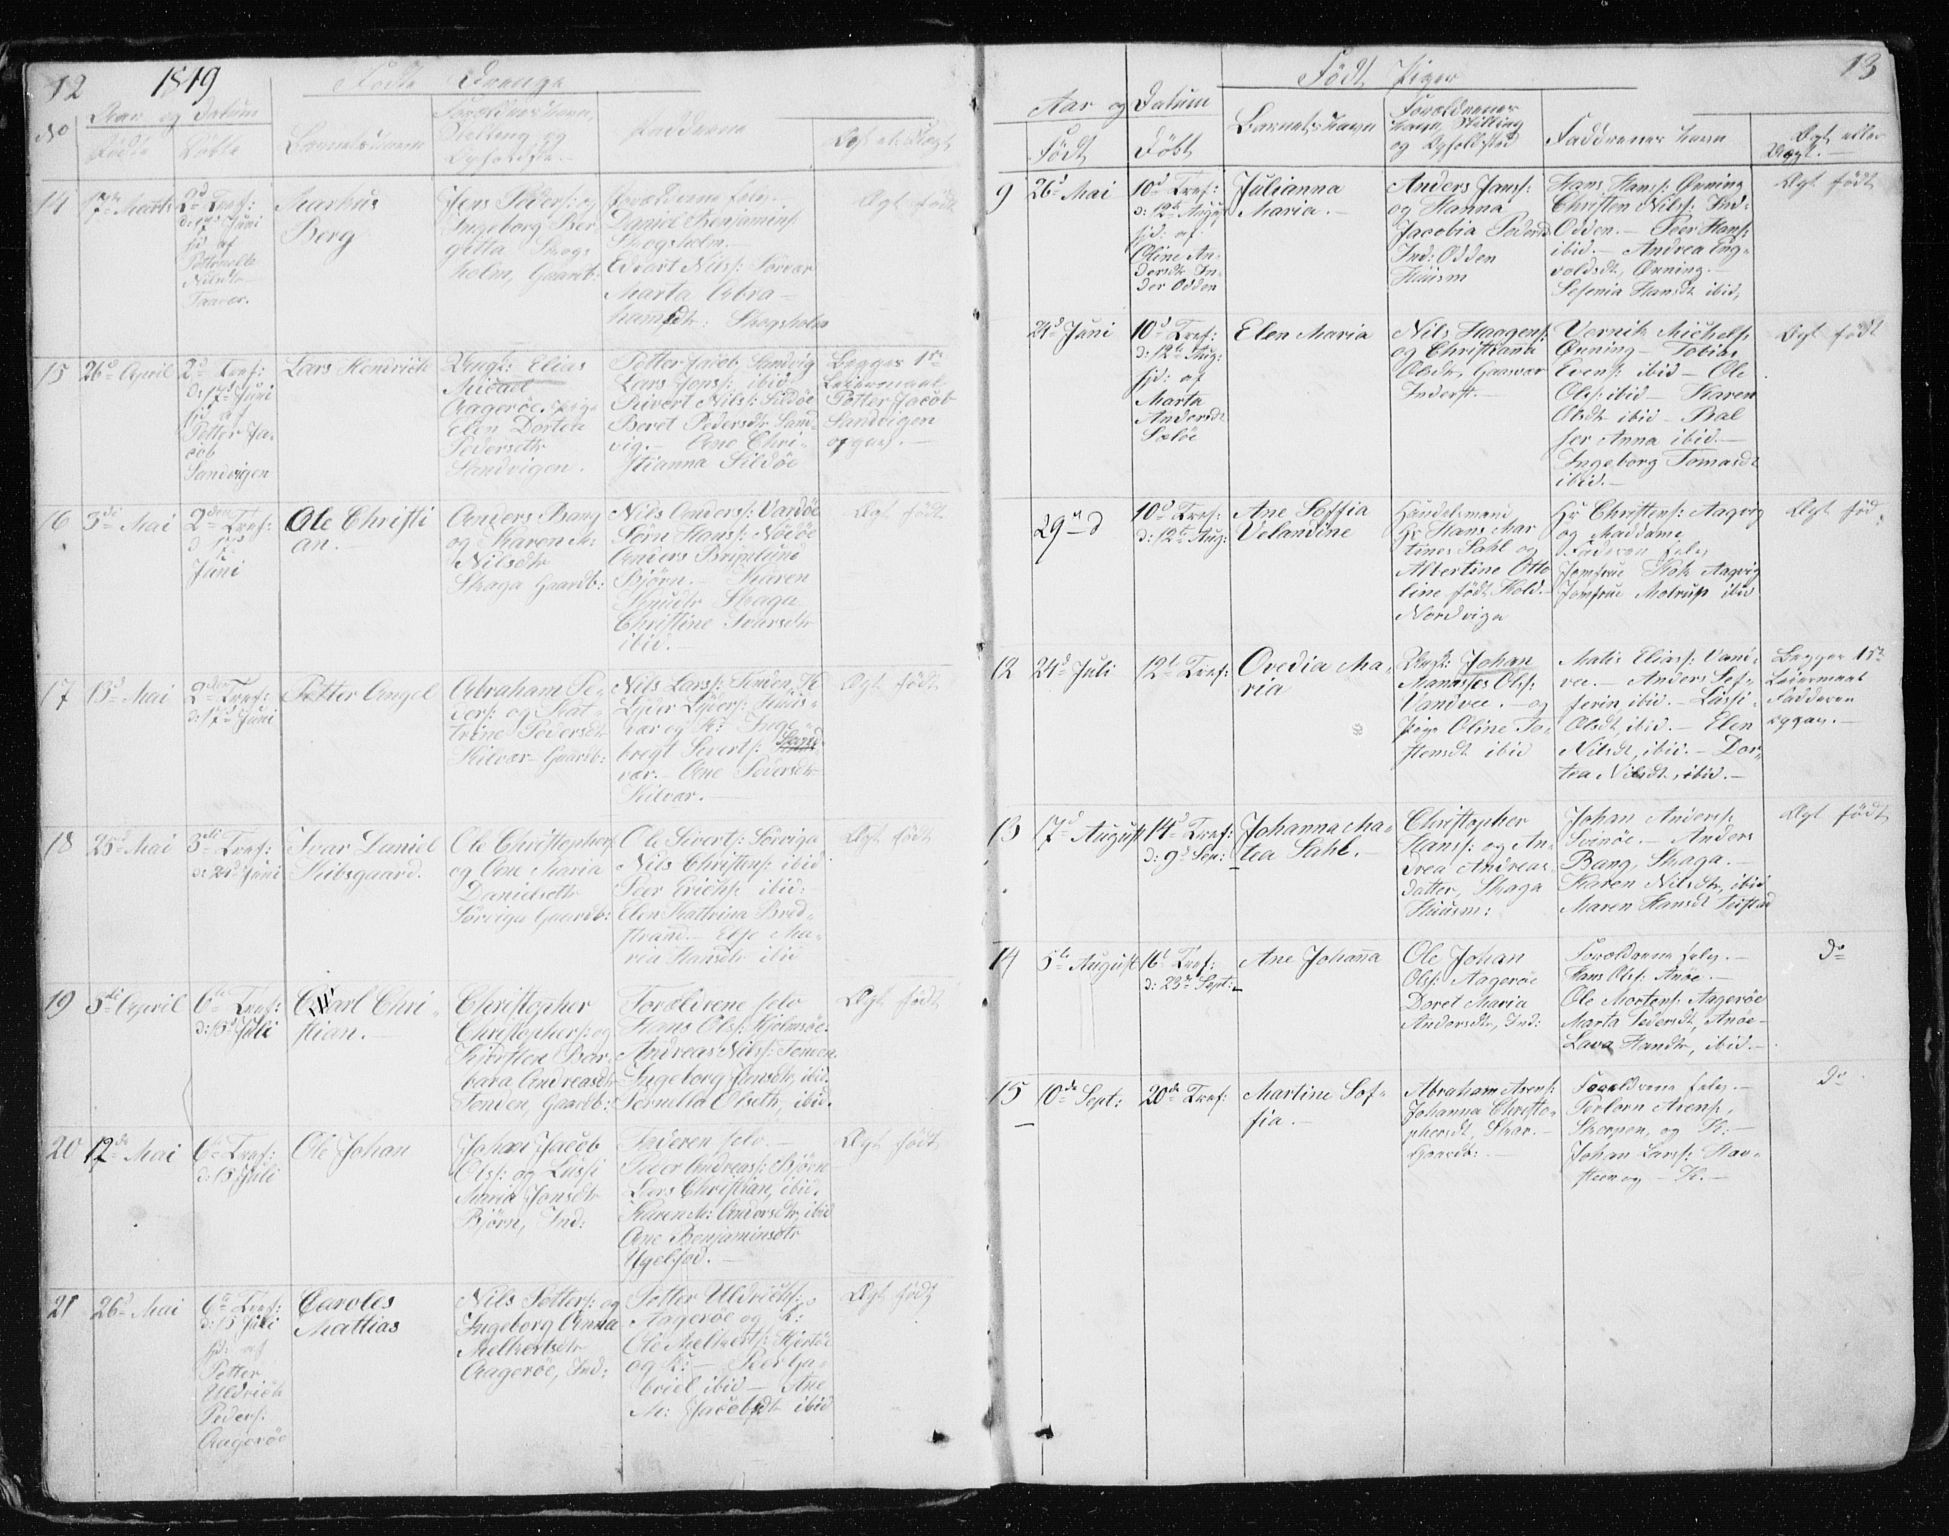 12 1849 Födte Drenge
No Aar og Datum
Födte Döbte Barnets Navn Forældres Navn, Stilling og Opholdst. Faddrene Ægt el: Uægt
14 17de Marts 2d Tref: d: 17de Juni hjd af Petternelle Nilsdtr
Markus
Berg
Jens Peders: og
Ingeborg Ber
gitta Skogs
holm, Gaardb:
Forældrene selv.
Daniel Benjamins:
Skogsholm
Edvart Nils: Sörvær
Marta Abra-
hamsdtr: Skogsholm
Ægt födt
15 26d April 2d Tref:
d: 17d Juni
hjd af
Petter Ja-
cob
Sandvigen
Lars Hendrich
Ungk: Elias
Micael
Aageröe, Pige
Elen Dortea
Pedersdtr
Sandvigen.
Petter Jacob Sandvig
Lars Jens: ibid
Sivert Nils: Sildöe
Beret Pedersdtr Sand-
vig.- Ane Chri-
stianna Sildöe
Begges 1ste
Leiermaal
Petter Jacob
Sandvigen
opgav.-
16 3di Mai 2den Tref:
d 17d
Juni
Ole Christi
an.-
Anders Bang
og Karen M:
Nilsdtr
Skaga Gaardb:
Nils Anders: Vardöe
Sörn Hans:
Anders
Björn.- Karen
Knudtr Skaga
Christine Ivarsdtr
ibid.-
Ægt födt
17 13d Mai 2den Tref:
d: 17d Juni
Petter Angel
Abraham Pe-
ders: og Kat-
trine Pedersdtr
Kilvær Gaardb:
Nils Lars:
vær og K: Inge-
bregt Sivert:
vær.- Ane Pedersdtr
Kilvær.-
Ægt födt
18 25d Mai 3di Tref:
d: 24d Juni
Ivar Daniel
Kibsgaard.
Ole Christophers:
og Ane Maria
Danielsdtr
Sörviga Gaardb:
Ole Sivert: Sörviga
Nils Christens: ibid
Peer Erichs: ibid:
Elen Kattrina Bred-
strand.- Else Ma-
ria Hansdtr ibid
Ægt födt
19 5te April 6te Tref:
d: 15d Juli
Carl Chri-
stian.-
Christopher
Christophers: og
Kirsten Bar-
bara Andreasdtr
Tenden, Gaardb:
Forældrene selv
Hans Ols: Hjelmsöe
Andreas Nils: Tenden
Ingeborg Jensdtr, ibid.
Pernella Olsdtr, ibid.
Ægt födt
20 12de Mai 6te Tref:
d: 15 Juli
Ole Johan
Johan Jacob
Ols: og Lussi
Maria Jonsdtr
Björn, Ind:
Faderen selv.-
Peder Andreas: Björn
Lars Christian, ibid.
Karen M: Andersdtr, ibid
Ane Benjaminsdtr
Ægt födt
21 26d Mai 6te Tref:
d: 15 Juli
hjd: af
Petter
Uldrich
Peders:
Aageröe
Caroles
Mattias
Nils Petters: og
Ingeborg Anna
Melkertsdtr
Aageröe, Ind:
Petter Uldrichs:
Aageröe og K:
Ole Melkerts:
og K:- Peer Ga-
briel ibid - Ane
M: Jacobsdtr ibid
Ægt födt
Födt Piger 13
Aar og Datum
Födt Döbt Barnets Navn Forældrenes Navn, Stilling og Opholdsted Faddrenes Navn Ægt eller Uægt.-
9 26d Mai 10d Tref:
d: 12te August
hjd: af
Oline An-
dersdtr In-
der Odden
Julianna
Maria.-
Anders Jans:
og Hanna
Jacobia Pedersd
Ind: Odden
Huusm
Hans Hans: Önning
Christen Nils: Ind-
Odden.- Peer Hans:
ibid.- Andrea Eng-
voldsdt, Önning.-
Sefenia Hansdt ibid,
Ægt födt
24d Juni 10d Tref:
d: 12te Aug:
hjd: af
Marta
Andersdt
Elen Maria
Nils Haagens:
og Christianna
Olsdtr, Gaasvær
Inderst.-
Vernik Michels:
Önning - Tobias
Evens: ibid - Ole
Ols: ibid - Karen
Olsdt ibid - Bal
ser Anna ibid.-
Ingeborg Tomasdt
ibid.-
Ægt födt
29 d 10d Tref:
d: 12te Aug:
Ane Soffia
Velandine
Handelsmand
Hr Hans Mar
tines Dahl og
Albertine Otto
line födt Hold.-
Nordviga
Hr Christens: Aagvig
og Maddame
Faderen selv,
Jomfrue Aagvig
Jomfrue ibid
Ægt föd.
12 24d Juli 12te Tref:
Ovedia Ma-
ria
Ungk: Johan
Manasses Ols:
Vandvee.- og
Pige Oline To-
stensdt ibid
Matis Elias: Vand-
vee.- Anders Sef-
ferin ibid.- Lussi-
Olsdt, ibid.- Elen
Nilsdt, ibid.- Dor-
tea Nilsdt, ibid.-
Begges 1ste
Leiermaal
Fadderen
opgav.-
13 17d August 14d Tref:
d: 9d Sep:
Johanna Ma-
tea Dahl.-
Christopher
Hans: og An-
drea Andreas-
datter, Skaga
Huusm:
Johan Anders:
Svinöe.- Anders
Bang, Skaga.-
Karen Nilsdtr, ibid
Maren Hansdt Seistad
Ægt födt
14 5te August 16te Tref:
d: 23de Sept:
Ane Johanna
Ole Johan
Ols: Aageröe
Doret Maria
Andersdtr, Ind:
Forældrene selv.-
Hans Ols: Anöe.-
Ole Mortens: Aageröe
Marta Pedersdt, Anöe-
Lava Hansdtr, ibid.-
do
15 10de Sept: 20de Tref:
Martine Sof-
fia.-
Abraham Arens:
Johanna Christo-
phersdt, Skar.-
Gaardb:-
Forældrene selv.-
Arens:
Skorpen, og K:-
Johan Lars: Hav-
steen og - K.-
do